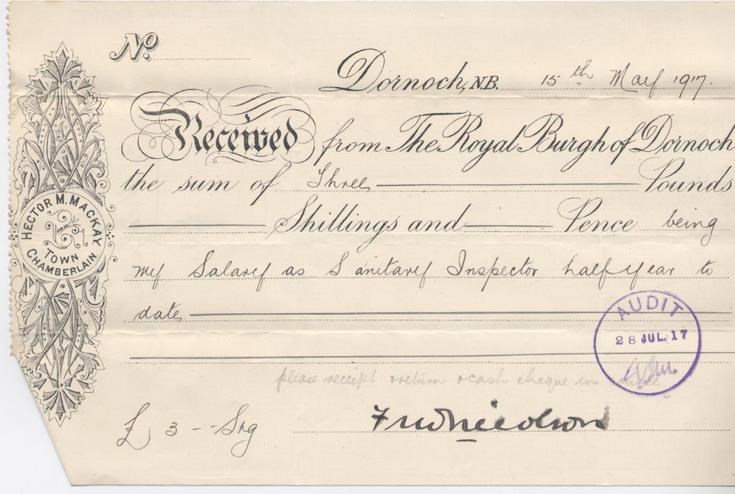 No
Dornoch, N.B. 15th May 1917.
Received from The Royal Burgh of Dornoch
the sum of Three Pounds
Shillings and Pence being
my Salary as Sanitary Inspector half year to
date
please receipt & return & cash cheque in
£ 3 - -
HECTOR M. MACKAY
TOWN
CHAMBERLAIN
AUDIT
28 JUL. 17